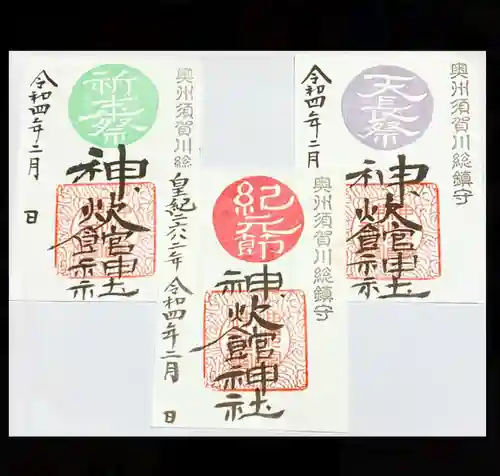 奥州須賀川総
祈年祭
神炊館神社
令和四年二月　日
奥州須賀川総鎮守
紀元節
神炊館神社
皇紀二六八二年 令和四年二月　日
奥州須賀川総鎮守
天長祭
神炊館神社
令和四年二月